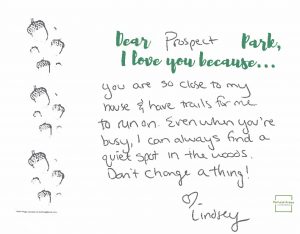 Dear Prospect Park,
I love you because...
you are so close to my
house & have trails for me
to run on. Even when you're
busy, I can always find a
quiet spot in the woods.
Don't change a thing!
♡- Lindsey